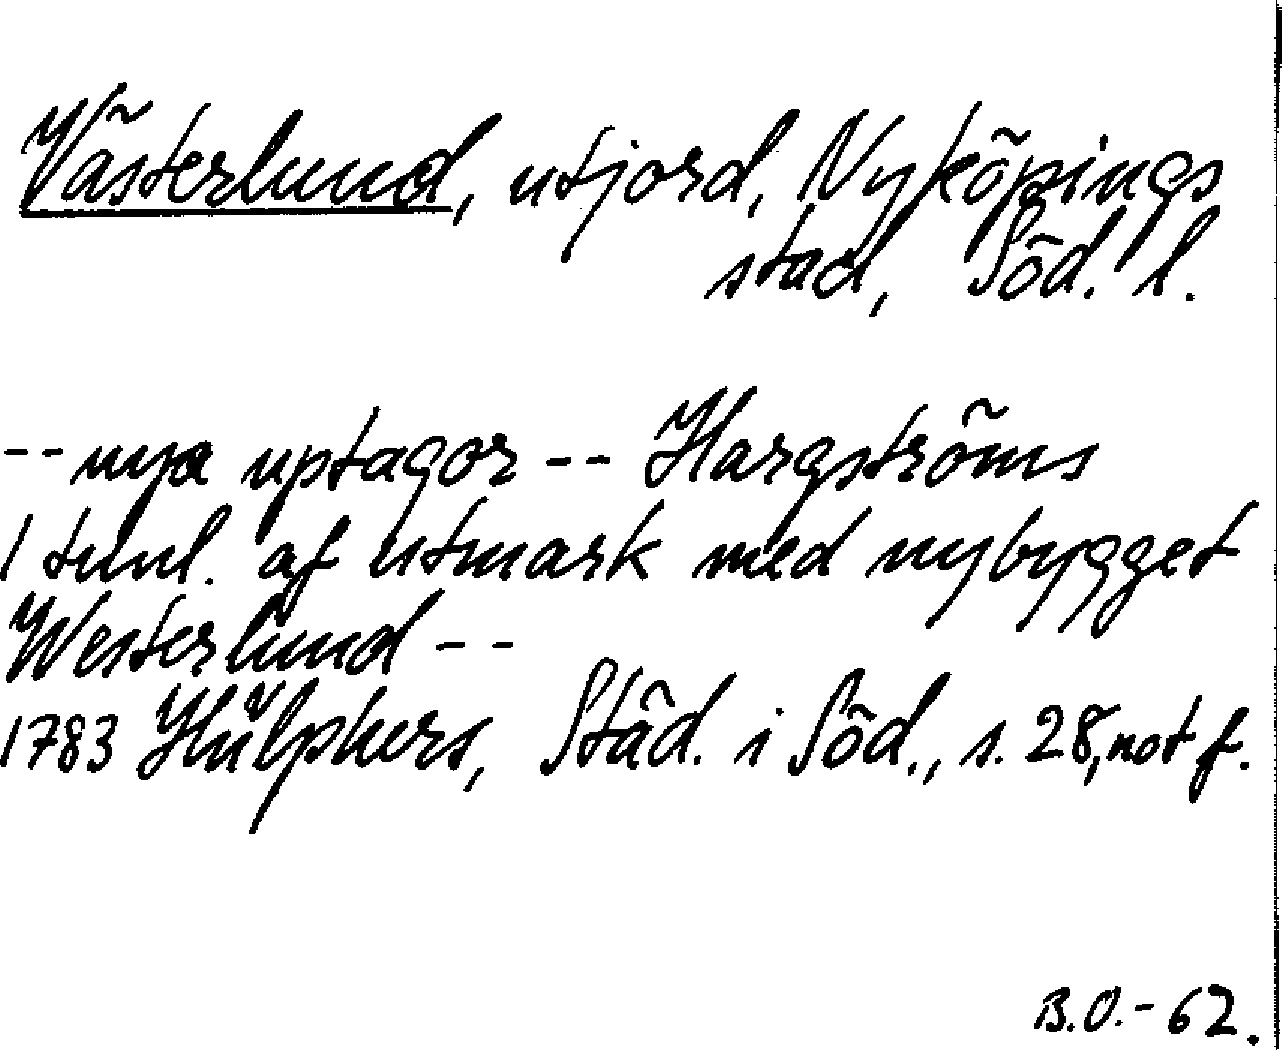 Västerlund, utjord, Nyköpings
stad, Söd. l.
-- nya uptagor -- Hargströms
1 tunl. af utmark med nybygget
Westerlund --
1783 Hülphers, Städ. i Söd., s. 28, not f.
B.O.-62.